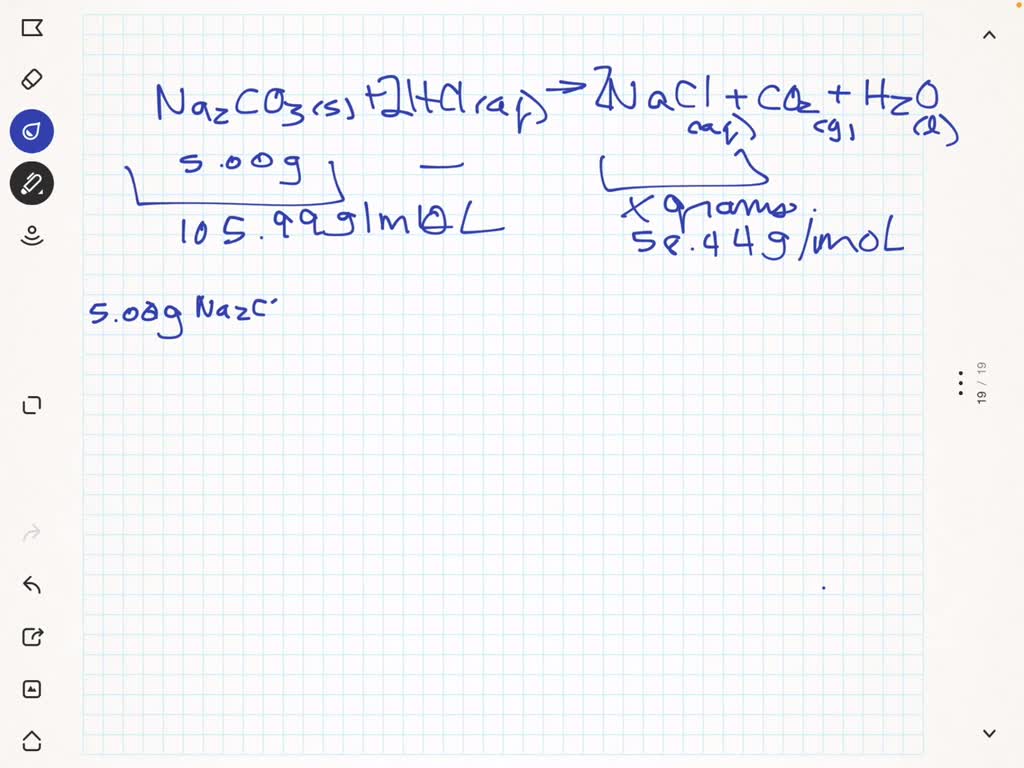 Na2CO3(s) + 2HCl(aq) → 2NaCl + CO2 + H2O
(aq) (g) (l)
5.00g —
105.99g/mOL
x grams.
58.44g/moL
5.00g Na2C
19 / 19